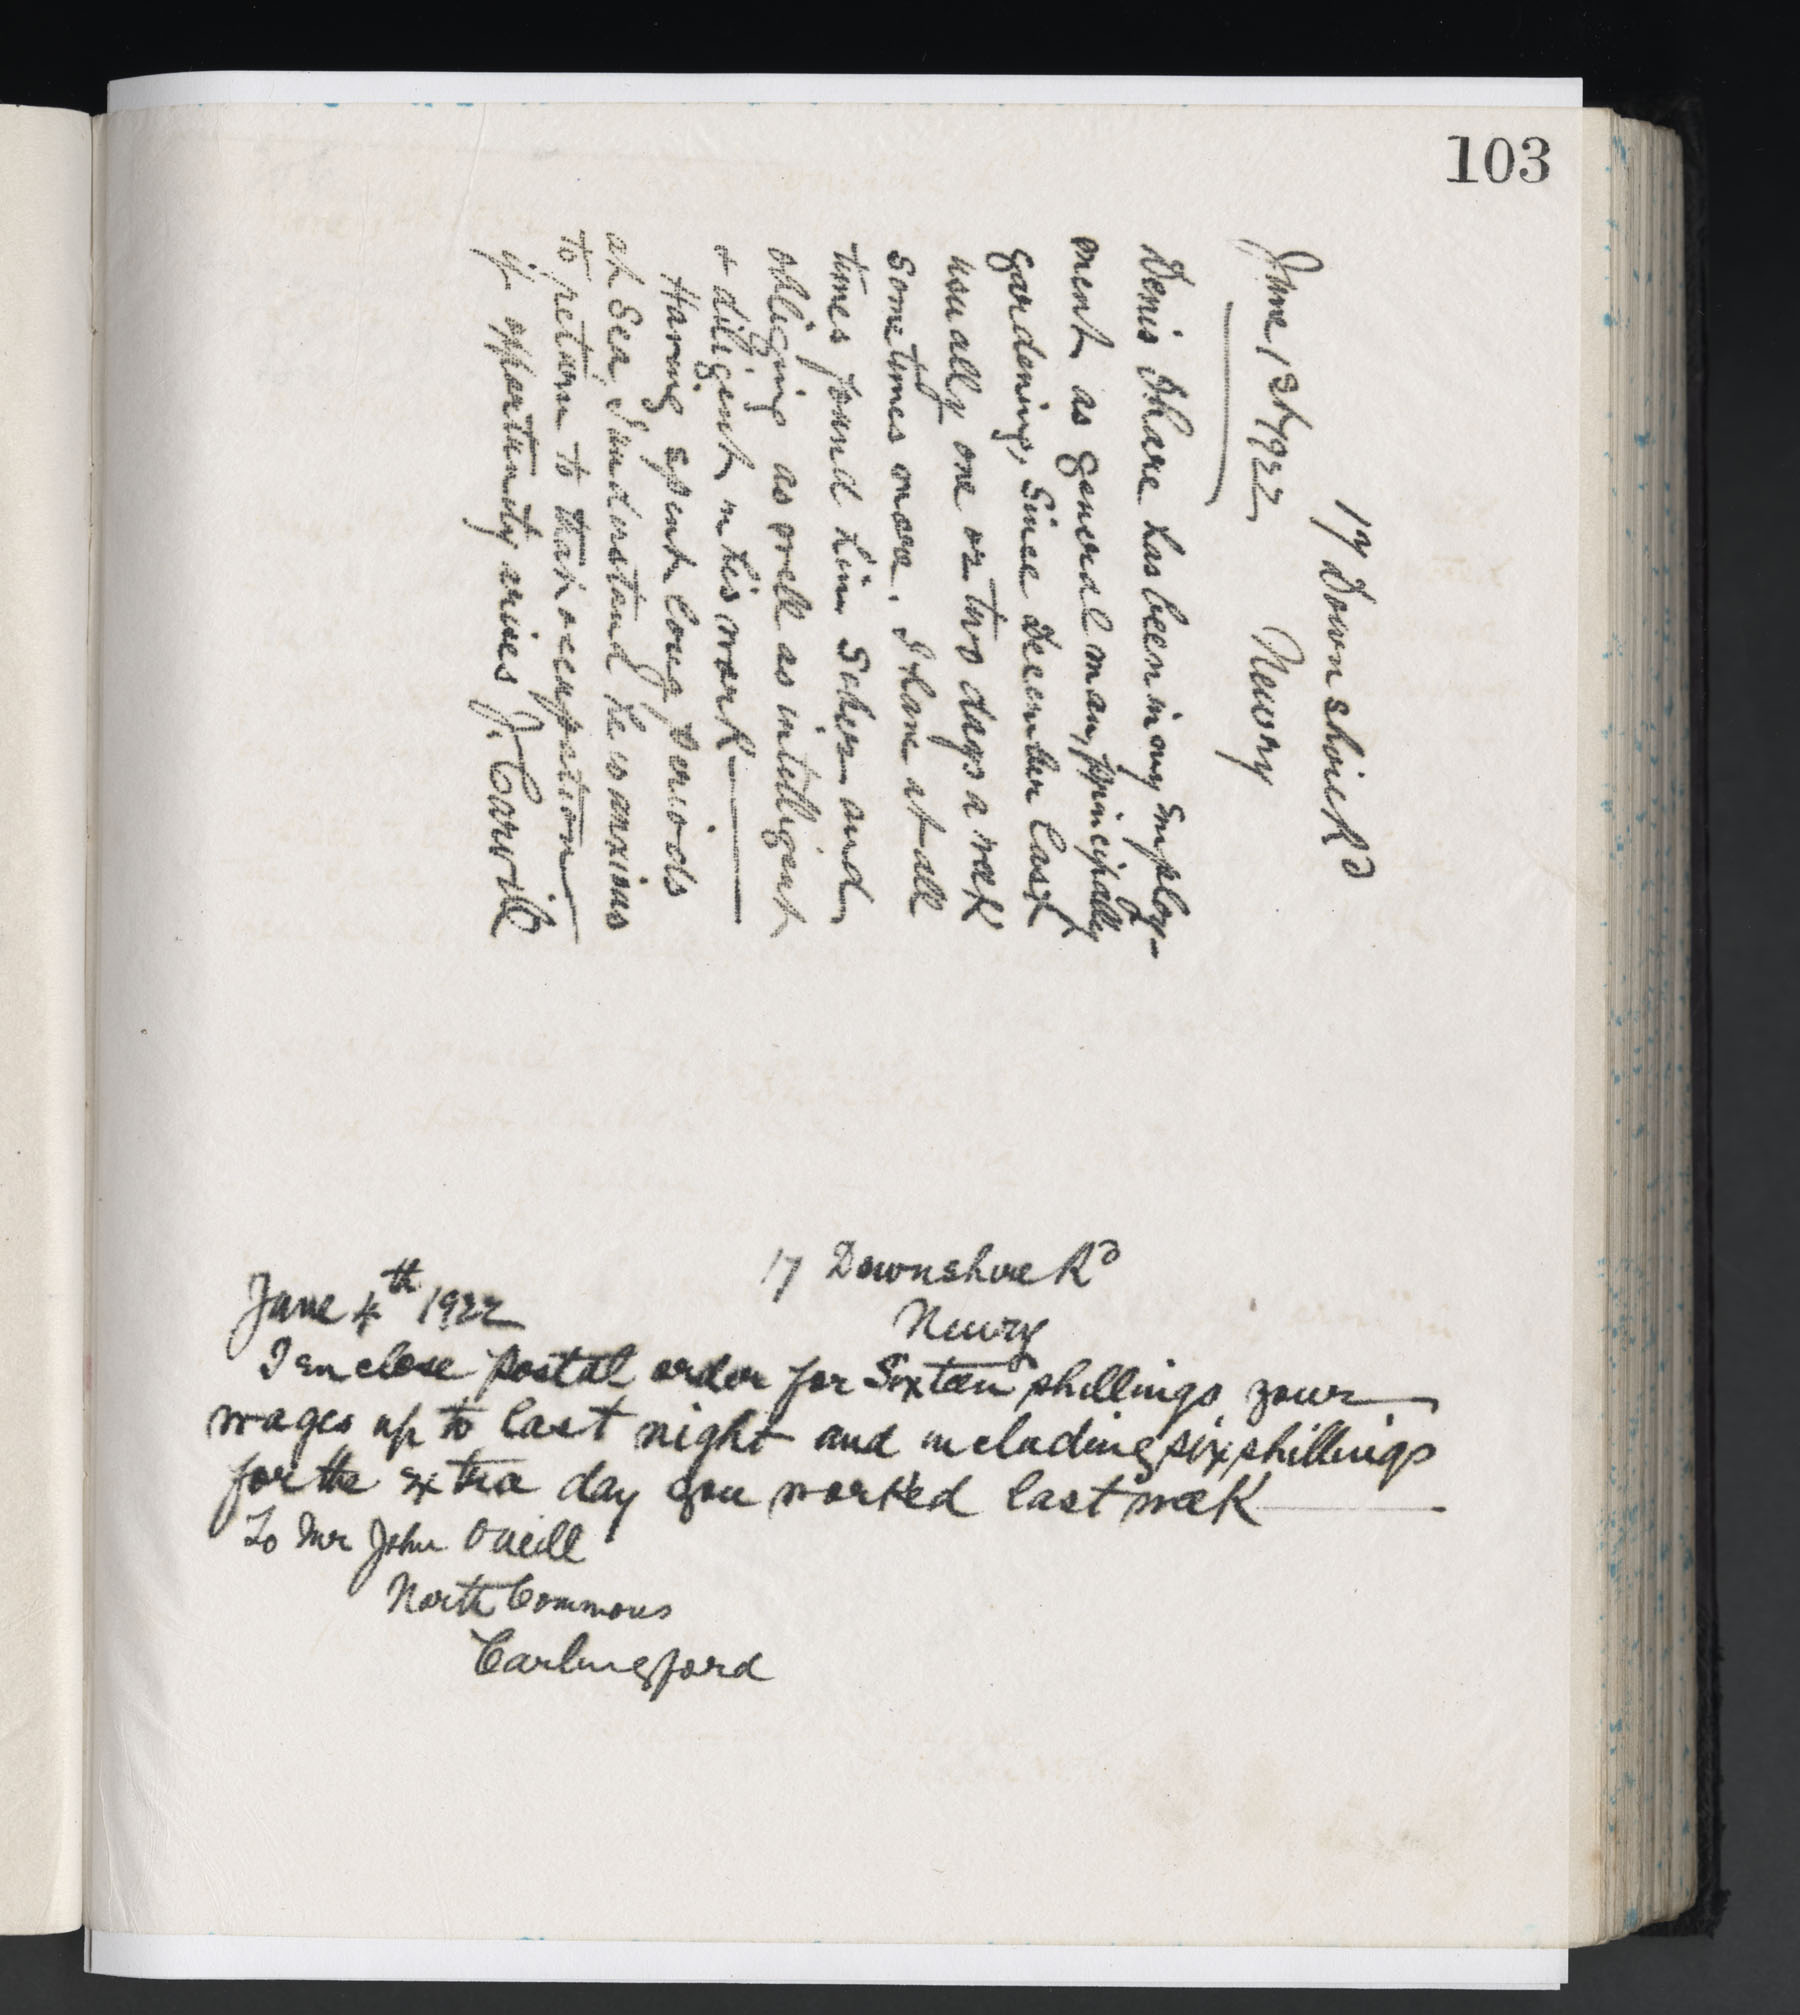 103
17 Downshire Rd
Newry
June 1st 1922
Denis Share has been in my employ-
ment as general man, principally
gardening, since December last
usually one or two days a week
sometimes more. I have at all
times found him sober and
obliging as well as intelligent
& diligent in his work
Having spent long periods
at sea, I understand he is anxious
to return to that occupation
if opportunity arises J. Carvill
17 Downshire Rd
Newry
June 4th 1922
I enclose postal order for Sixteen shillings your
wages up to last night and including six shillings
for the extra day you worked last week
To Mr John Oneill
North Commons
Carlingford